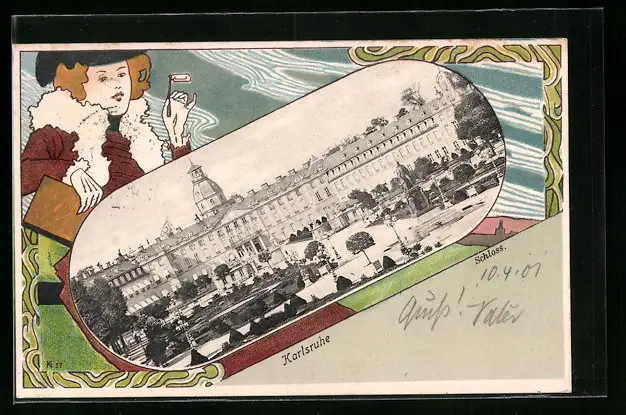 Schloss.
10.4.01
Gruß! Vater
Karlsruhe